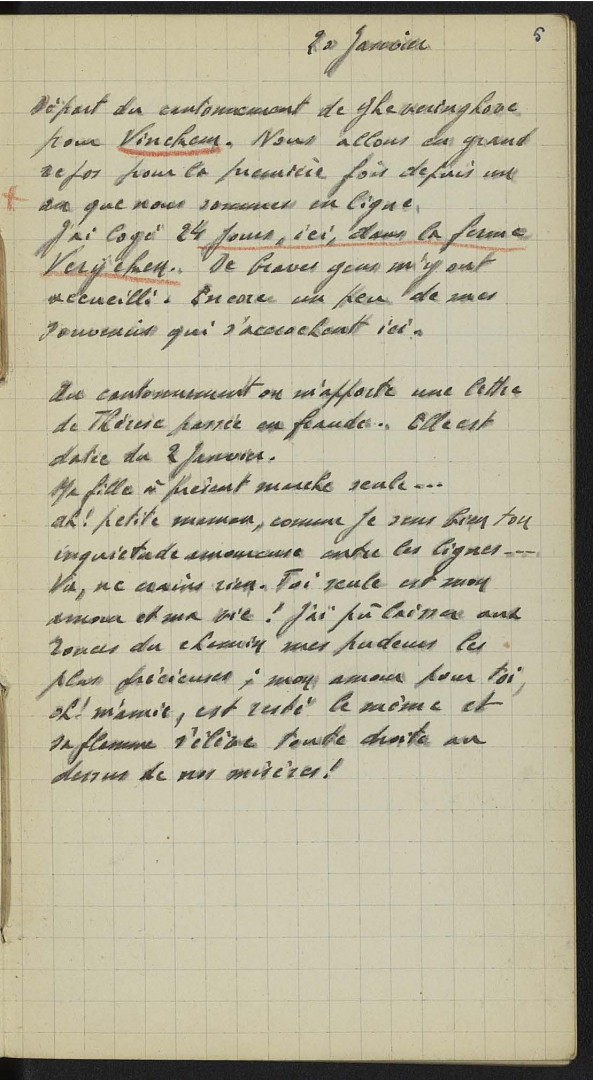 20 Janvier
5
Départ du cantonnement de Gheveringhove
pour Vinchem. Nous allons en grand
repos pour la première fois depuis un
an que nous sommes en ligne.
J'ai logé 24 Jours, ici, dans la ferme
De braves gens m'y ont
accueilli. Encore un peu de mes
souvenirs qui s'accrochent ici.
Au cantonnement on m'apporte une lettre
de Thérèse passée en fraude.. Elle est
datée du 2 Janvier.
Ma fille à présent marche seule...
Ah! petite maman, comme je sens bien ton
inquietude amoureuse entre les lignes...
Va, ne crains rien. Toi seule est mon
amour et ma vie! J'ai pû laisser aux
ronces du chemin mes pudeurs les
plus précieuses; mon amour pour toi,
oh! m'amie, est resté le même et
sa flamme s'élève toute droite au
dessus de nos misères!